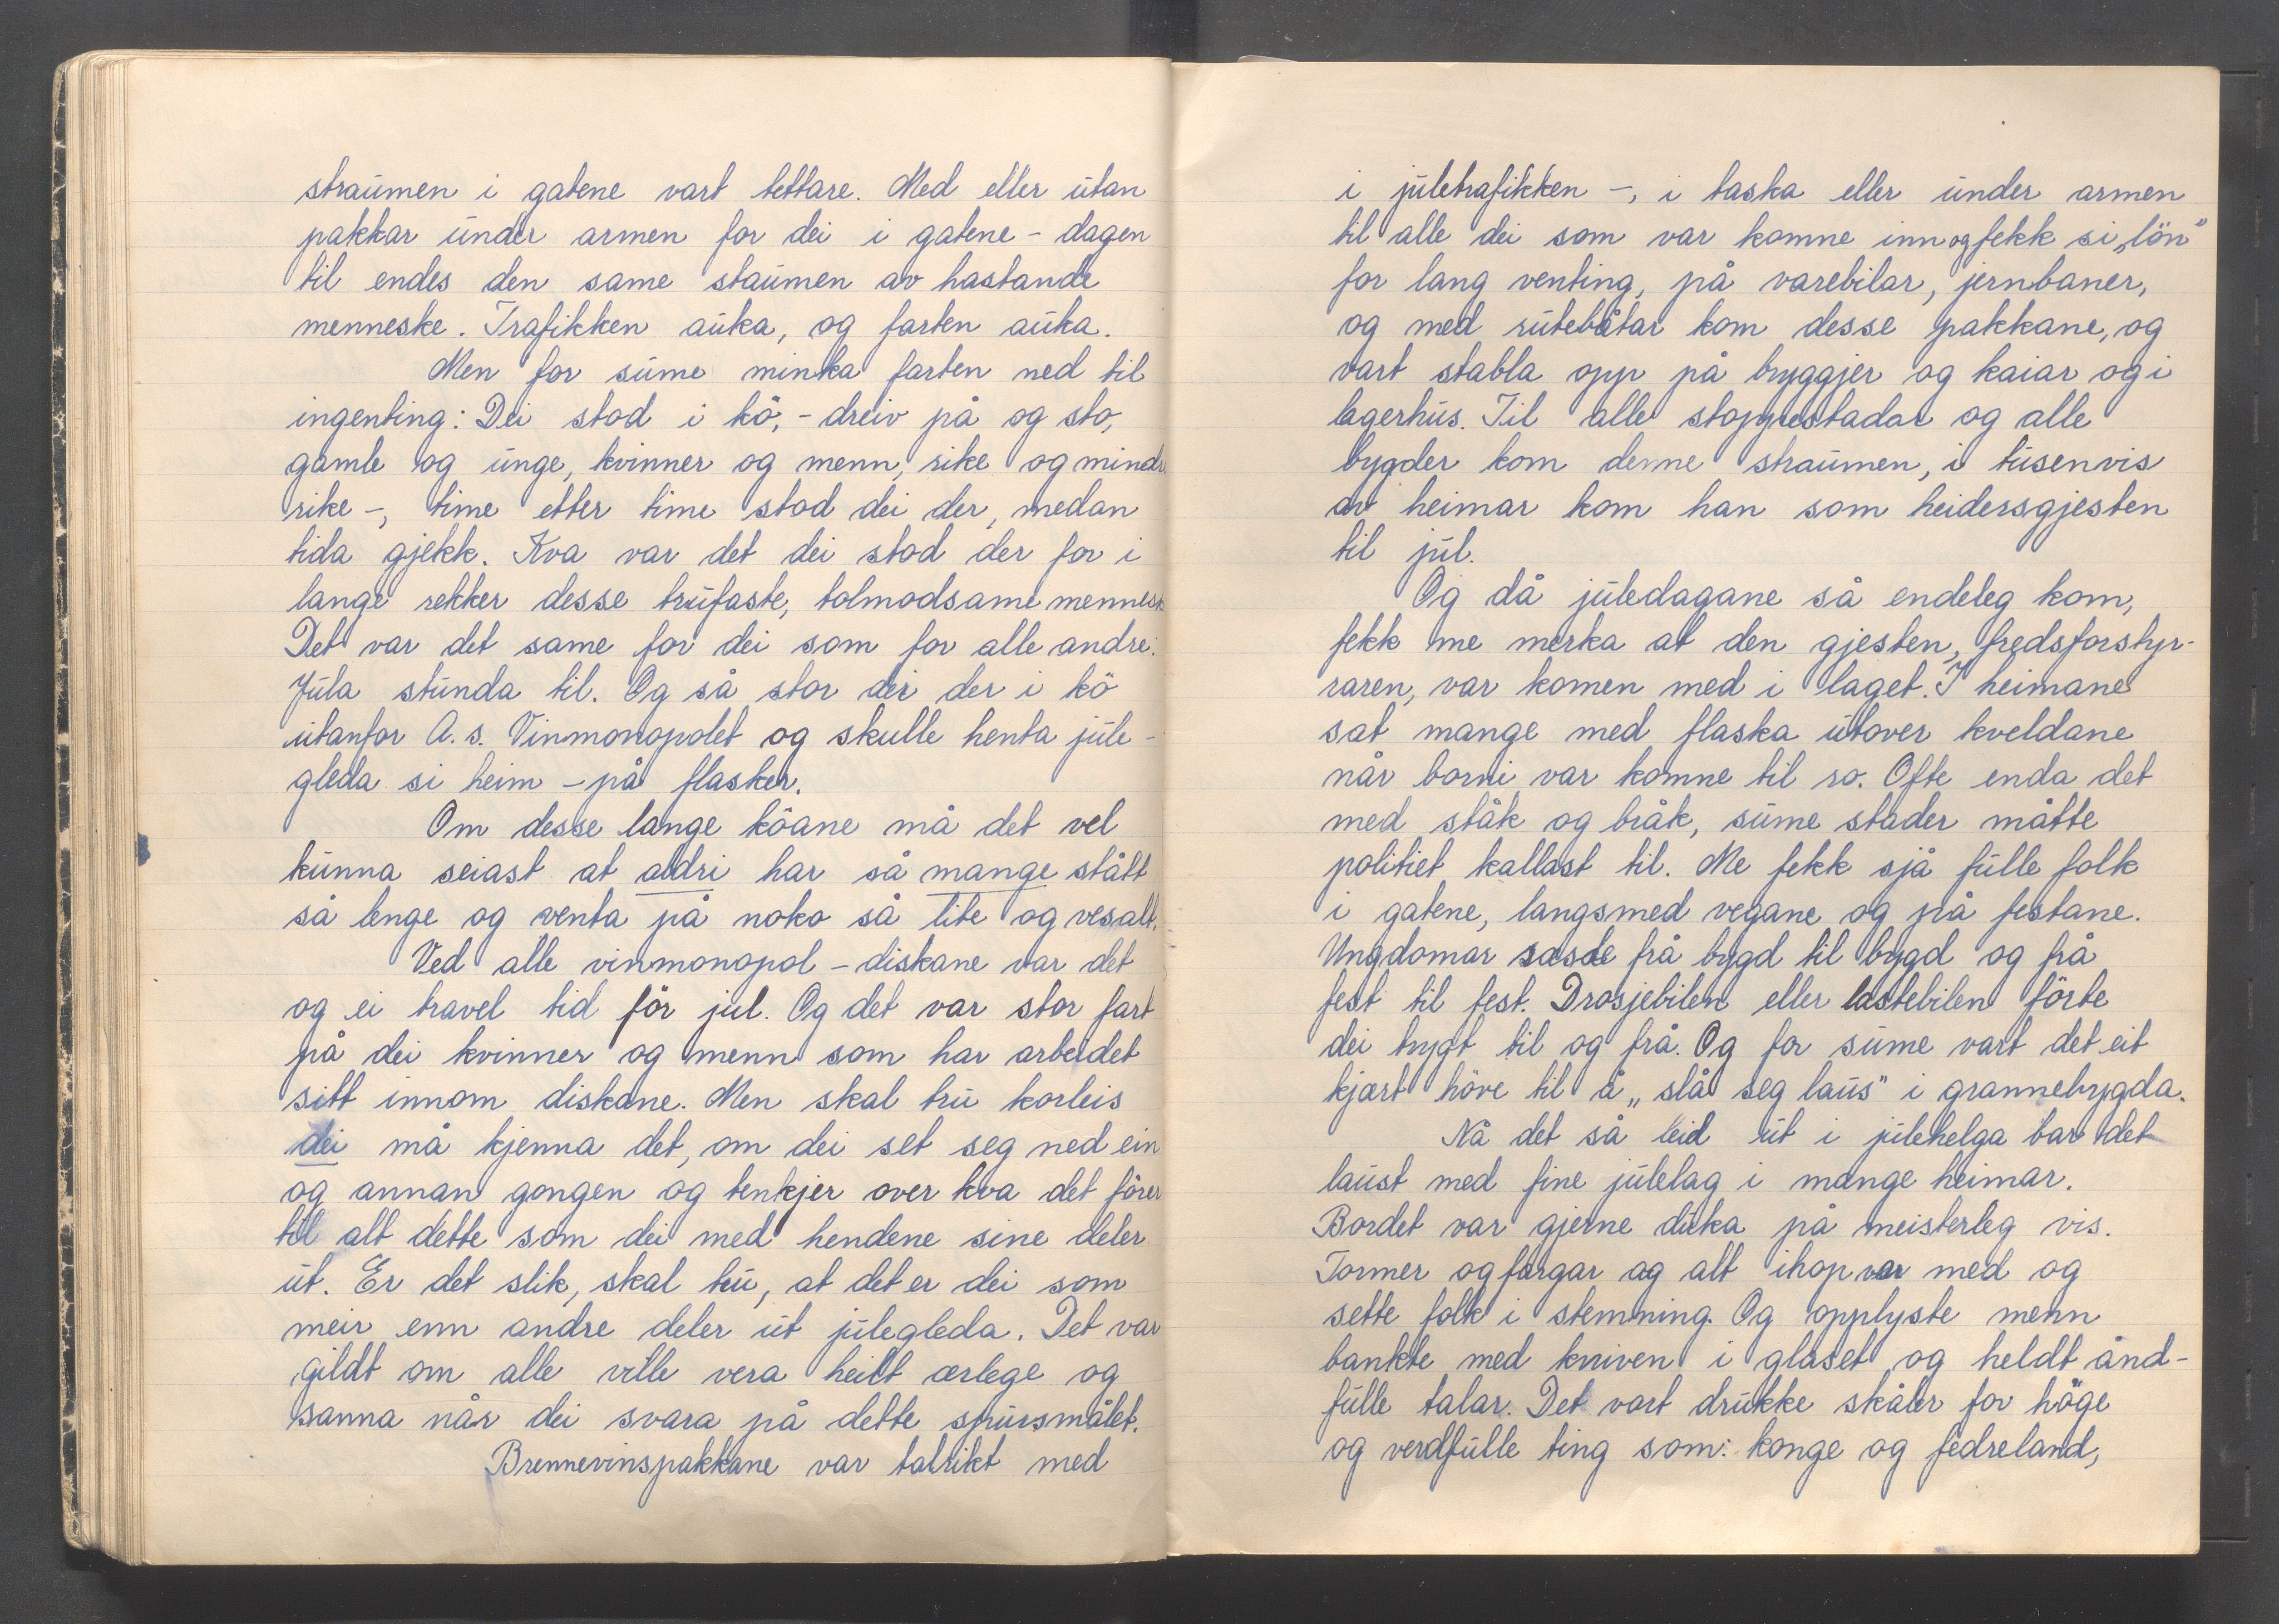 straumen i gatene vart tettare. Med eller utan
pakkar under armen for dei i gatene - dagen
til endes den same staumen av hastande
menneske. Trafikken auka, og farten auka.
Men for sume minka farten ned til
ingenting: Dei stod i kö, - dreiv på og sto,
gamle og unge, kvinner og menn, rike og mindre
rike -, time etter time stod dei der, medan
tida gjekk. Kva var det dei stod der for i
lange rekker desse trufaste, tolmodsame mennesk
Det var det same for dei som for alle andre:
Jula stunda til. Og så stor dei der i kö
utanfor A.s. Vinmonopolet og skulle henta jule-
gleda si heim - på flasker.
Om desse lange köane må det vel
kunna seiast at aldri har så mange stått
så lenge og venta på noko så lite og vesalt.
Ved alle vinmonopol - diskane var det
og ei travel tid för jul. Og det var stor fart
på dei kvinner og menn som har arbeidet
sitt innom diskane. Men skal tru korleis
dei må kjenna det, om dei set seg ned ein
og annan gongen og tenkjer over kva det förer
til alt dette som dei med hendene sine deler
ut. Er det slik, skal tru, at det er dei som
meir enn andre deler ut julegleda. Det var
gildt om alle ville vera heilt ærlege og
sanna når dei svara på dette spursmålet.
Brennevinspakkane var talrikt med
i juletrafikken -, i taska eller under armen
til alle dei som var komne inn og fekk si „lön"
for lang venting, på varebilar, jernbaner,
og med rutebåtar kom desse pakkane, og
vart stabla opp på bryggjer og kaiar og i
lagerhus. Til alle stoppestadar og alle
bygder kom denne straumen, i tusenvis
av heimar kom han som heidersgjesten
til jul.
Og då juledagane så endeleg kom,
fekk me merka at den gjesten, fredsforstyr-
raren, var komen med i laget. I heimane
sat mange med flaska utover kveldane
når borni var komne til ro. Ofte enda det
med ståk og bråk, sume stader måtte
politiet kallast til. Me fekk sjå fulle folk
i gatene, langsmed vegane og på festane.
Ungdomar rasde frå bygd til bygd og frå
fest til fest. Drosjebilen eller lastebilen förte
dei trygt til og frå. Og for sume vart det eit
kjært höve til å „slå seg laus" i grannebygda.
Nå det så leid ut i julehelga bar det
laust med fine julelag i mange heimar.
Bordet var gjerne duka på meisterleg vis.
Former og fargar og alt ihop var med og
sette folk i stemning. Og opplyste menn
bankte med kniven i glaset og heldt ånd-
fulle talar. Det vart drukke skåler for höge
og verdfulle ting som: konge og fedreland,